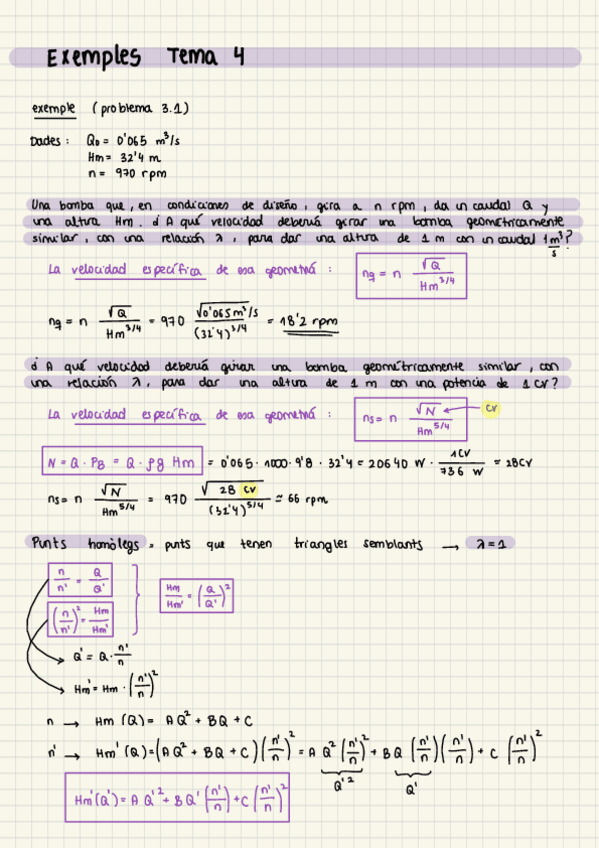 Exemples Tema 4
exemple (problema 3.1)
Dades: Q₀ = 0'065 m³/s
Hm = 32'4 m
n = 970 rpm
Una bomba que, en condiciones de diseño, gira a n rpm, da un caudal Q y
una altura Hm. ¿A qué velocidad debería girar una bomba geométricamente
similar, con una relación λ, para dar una altura de 1 m con un caudal 1 m³/s?
La velocidad específica de esa geometría: nq = n √Q / Hm^3/4
nq = n √Q / Hm^3/4 = 970 √0'065 m³/s / (32'4)^3/4 = 18'2 rpm
¿A qué velocidad debería girar una bomba geométricamente similar, con
una relación λ, para dar una altura de 1 m con una potencia de 1 CV?
La velocidad específica de esa geometría: ns = n √N / Hm^5/4 ← CV
N = Q · PB = Q · ρg Hm = 0'065 · 1000 · 9'8 · 32'4 = 20640 W · 1CV / 736 W = 28CV
ns = n √N / Hm^5/4 = 970 √28 CV / (32'4)^5/4 ≈ 66 rpm
Punts homòlegs = punts que tenen triangles semblants → λ = 1
n/n' = Q/Q'
(n/n')² = Hm/Hm'
Hm/Hm' = (Q/Q')²
Q' = Q · n'/n
Hm' = Hm · (n'/n)²
n → Hm (Q) = AQ² + BQ + C
n' → Hm' (Q) = (AQ² + BQ + C)(n'/n)² = A Q² (n'/n)² + BQ (n'/n)(n'/n) + C (n'/n)²
Q'² Q'
Hm'(Q') = A Q'² + BQ' (n'/n) + C (n'/n)²